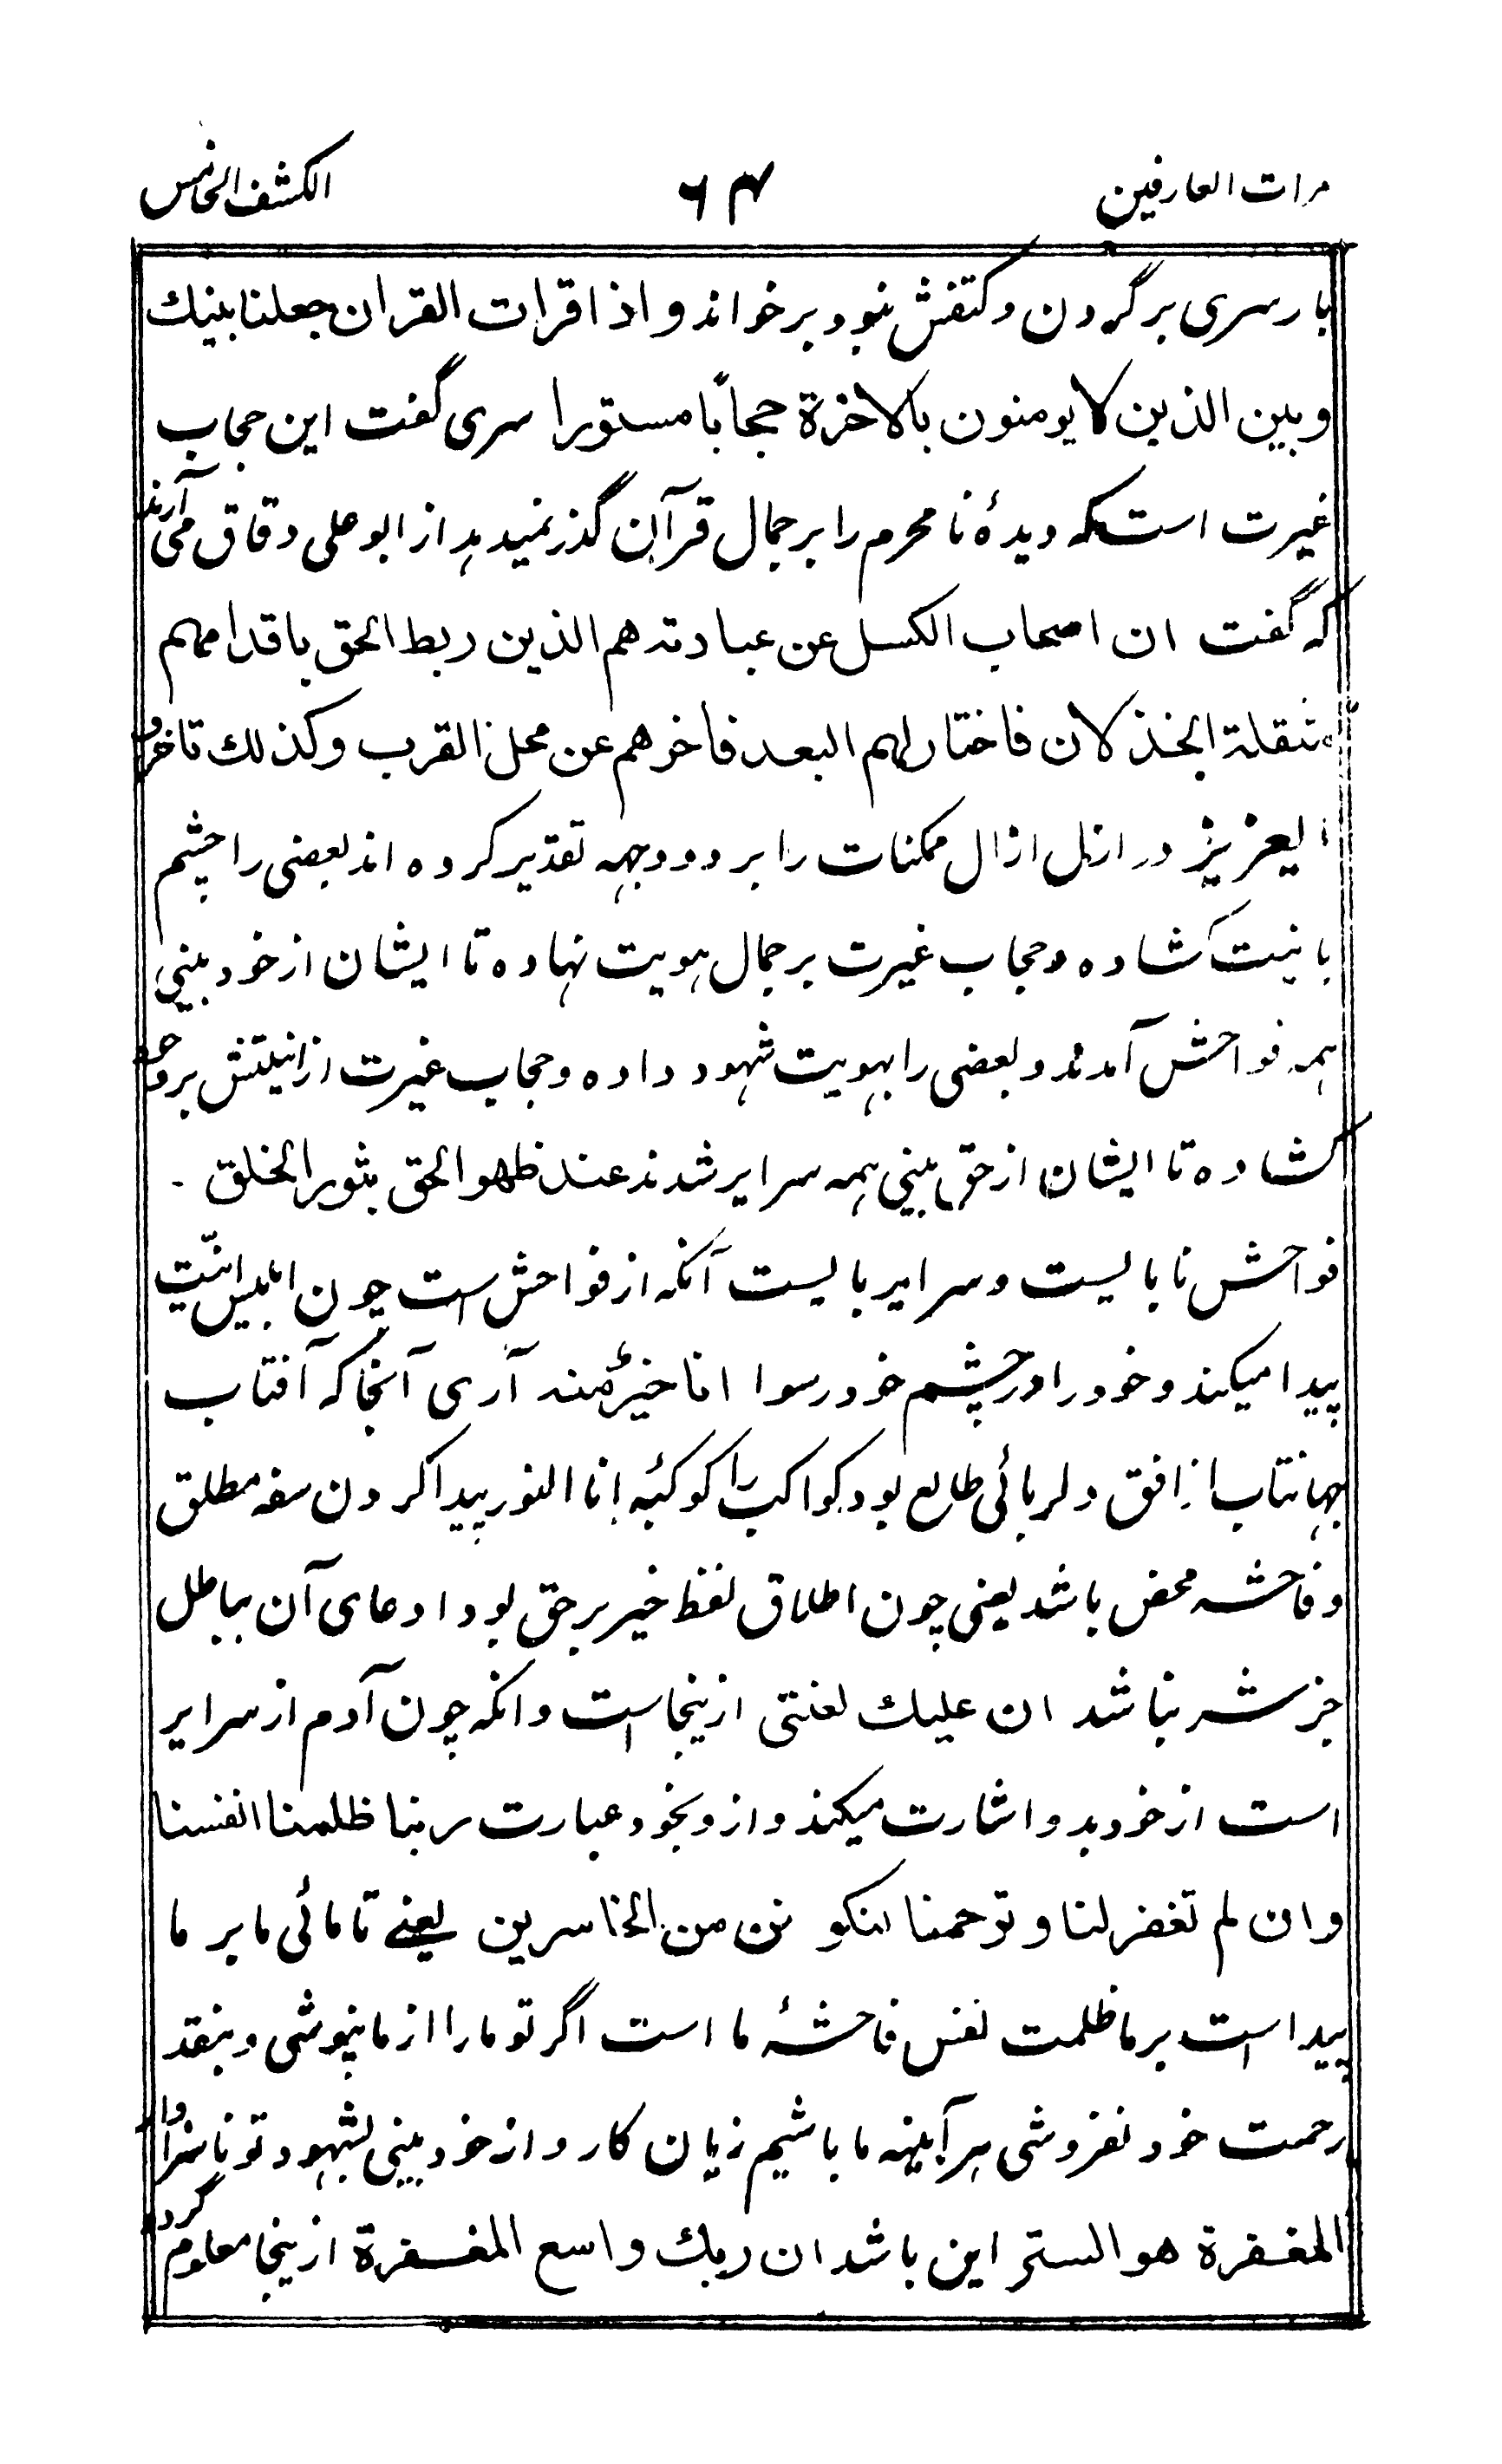 مرات العارفین ۶۴ الکشف الخامس
بار سری بر گردن و کتفش نبود بر خواند و اذا قرات القران جعلنا بینك
و بین الذین لا یومنون بالاخرة حجاباً مستورا سری گفت این حجاب
غیرت است که دیدۀ نا محرم را بر جمال قرآن گذر نمیدهد از ابو علی دقاق می آرند
که گفت ان اصحاب الکسل عن عبادته هم الذین ربط الحق باقدامهم
مثقلة الخذلان فاختار لهم البعد فاخرهم عن محل القرب و کذلك تاخروا
ای عزیز در ازل ازال ممکنات را بر دو وجهه تقدیر کرده اند بعضی را چشم
بانیت کشاده و حجاب غیرت بر جمال هویت نهاده تا ایشان از خود بینی
همه فواحش آمدند و بعضی را بهویت شهود داده و حجاب غیرت از انیتش بر وجه
کشاده تا ایشان از حق بینی همه سرایر شدند عند ظهو الحق بثور الخلق ۔
فواحش نا بایست و سرایر بایست آنکه از فواحش است چون ابلیس انیّت
پیدا میکند و خود را در چشم خود رسوا انا خیرٌ منه آری آنجا که آفتاب
جهانتاب از افق دلربائی طالع بود کواکب را کوکبه انا النور پیدا کردن سفه مطلق
و فاحشه محض باشد یعنی چون اطلاق لفظ خیر بر حق بود ادعای آن بباطل
جز شر نباشد ان علیك لعنتی ازینجا است وانکه چون آدم از سرایر
است از خود بدو اشارت میکند و از و بخود عبارت ربنا ظلمنا انفسنا
و ان لم تغفر لنا و ترحمنا لنکو نن من الخاسرین یعنے تا مائی ما بر ما
پیدا است بر ما ظلمت نفس فاحشۀ ما است اگر تو ما را از ما نپوشی و بنقد
رحمت خود نفروشی هر آینه ما باشیم زیان کار و از خود بینی بشهود تو ناسزاوار
المغفرة هو الستر این باشد ان ربك واسع المغفرة ازینجا معلوم گردد